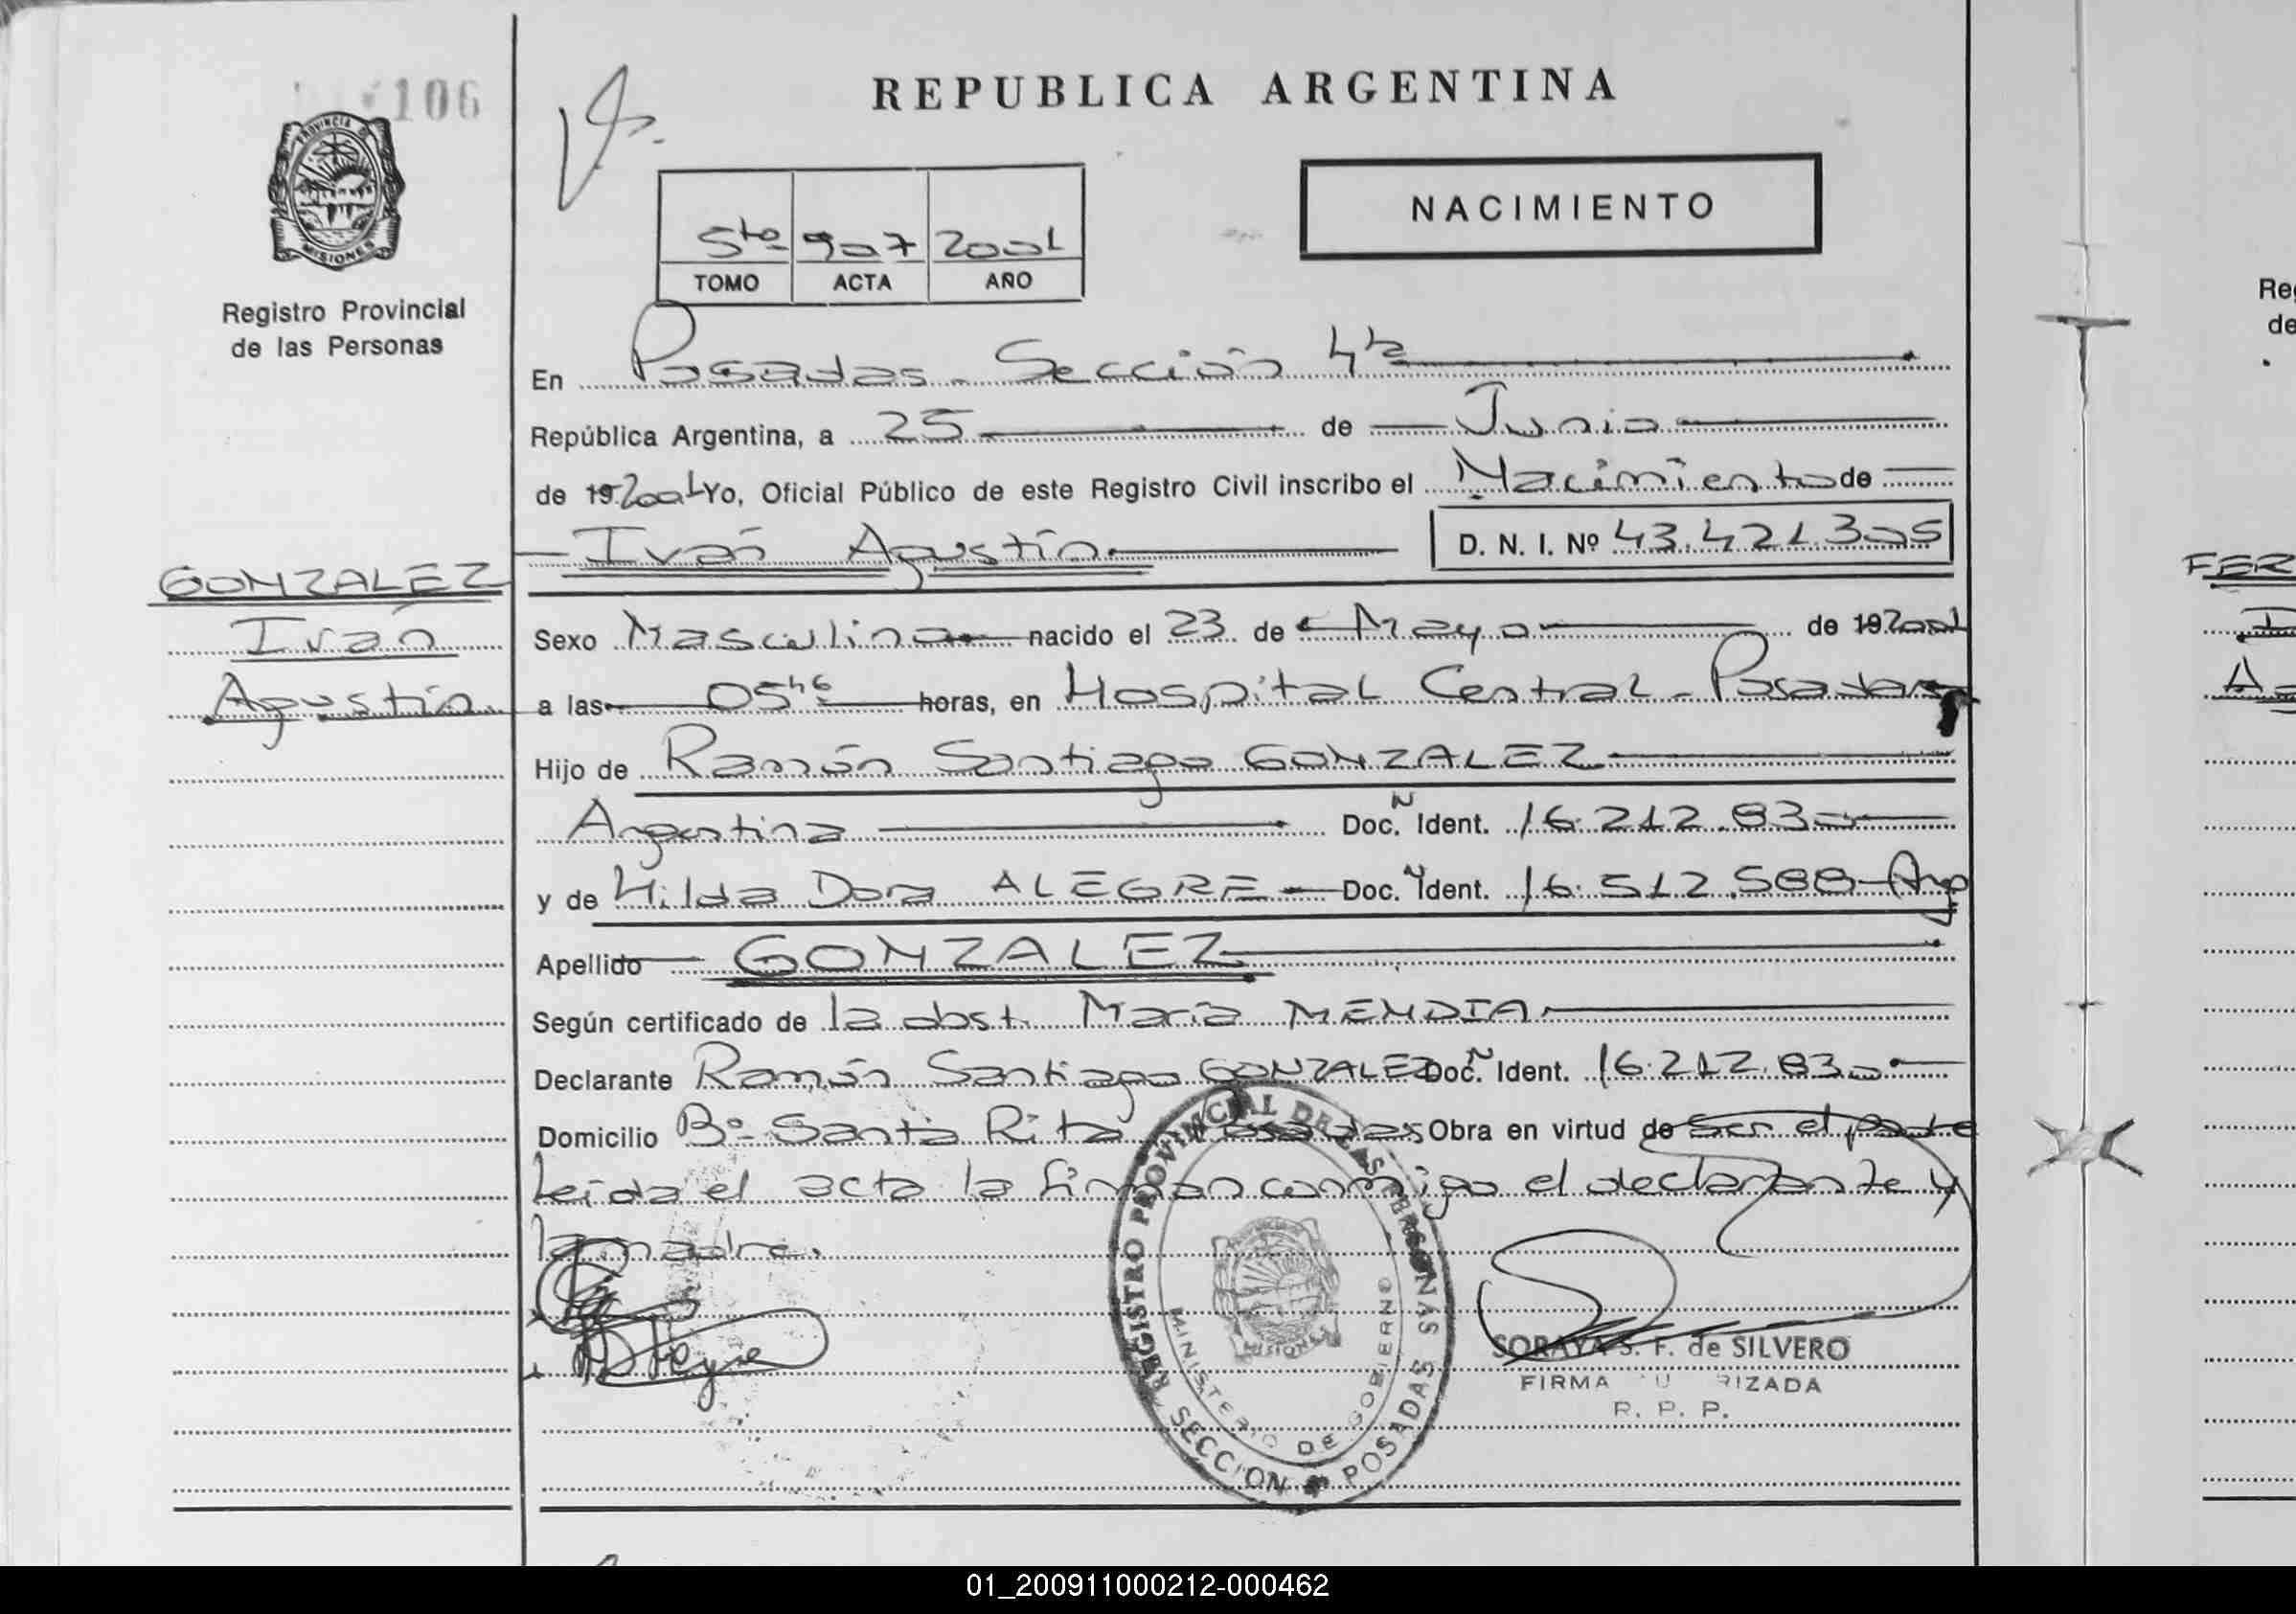 106
REPUBLICA ARGENTINA
PROVINCIA D
MISIONES
NACIMIENTO
5to 907 2001
TOMO ACTA AÑO
Registro Provincial
de las Personas
En Posadas - Sección 4ta
República Argentina, a 25 de Junio
de 19 2001 Yo, Oficial Público de este Registro Civil inscribo el Nacimiento de
Iván Agustín D. N. I. Nº 43.421.305
GONZALEZ
Iván
Agustín
Sexo Masculino nacido el 23 de Mayo de 19 2001
a las 05 46 horas, en Hospital Central - Posadas
Hijo de Ramón Santiago GONZALEZ
Argentina Doc. N Ident. 16.212.830
y de Hilda Dora ALEGRE Doc. N Ident. 16.512.588 - Arg
Apellido GONZALEZ
Según certificado de la obst. María MENDIA
Declarante Ramón Santiago GONZALEZ Doc. N Ident. 16.212.830
Domicilio Bº Santa Rita Posadas Obra en virtud de ser el padre
Leída el acta la firman conmigo el declarante y
la madre.
REGISTRO PROVINCIAL DE LAS PERSONAS
MINISTERIO DE GOBIERNO
MISIONES
SECCION POSADAS
SORAYA S. F. de SILVERO
FIRMA RIZADA
R. P. P.
Reg
de
FER
01_200911000212-000462